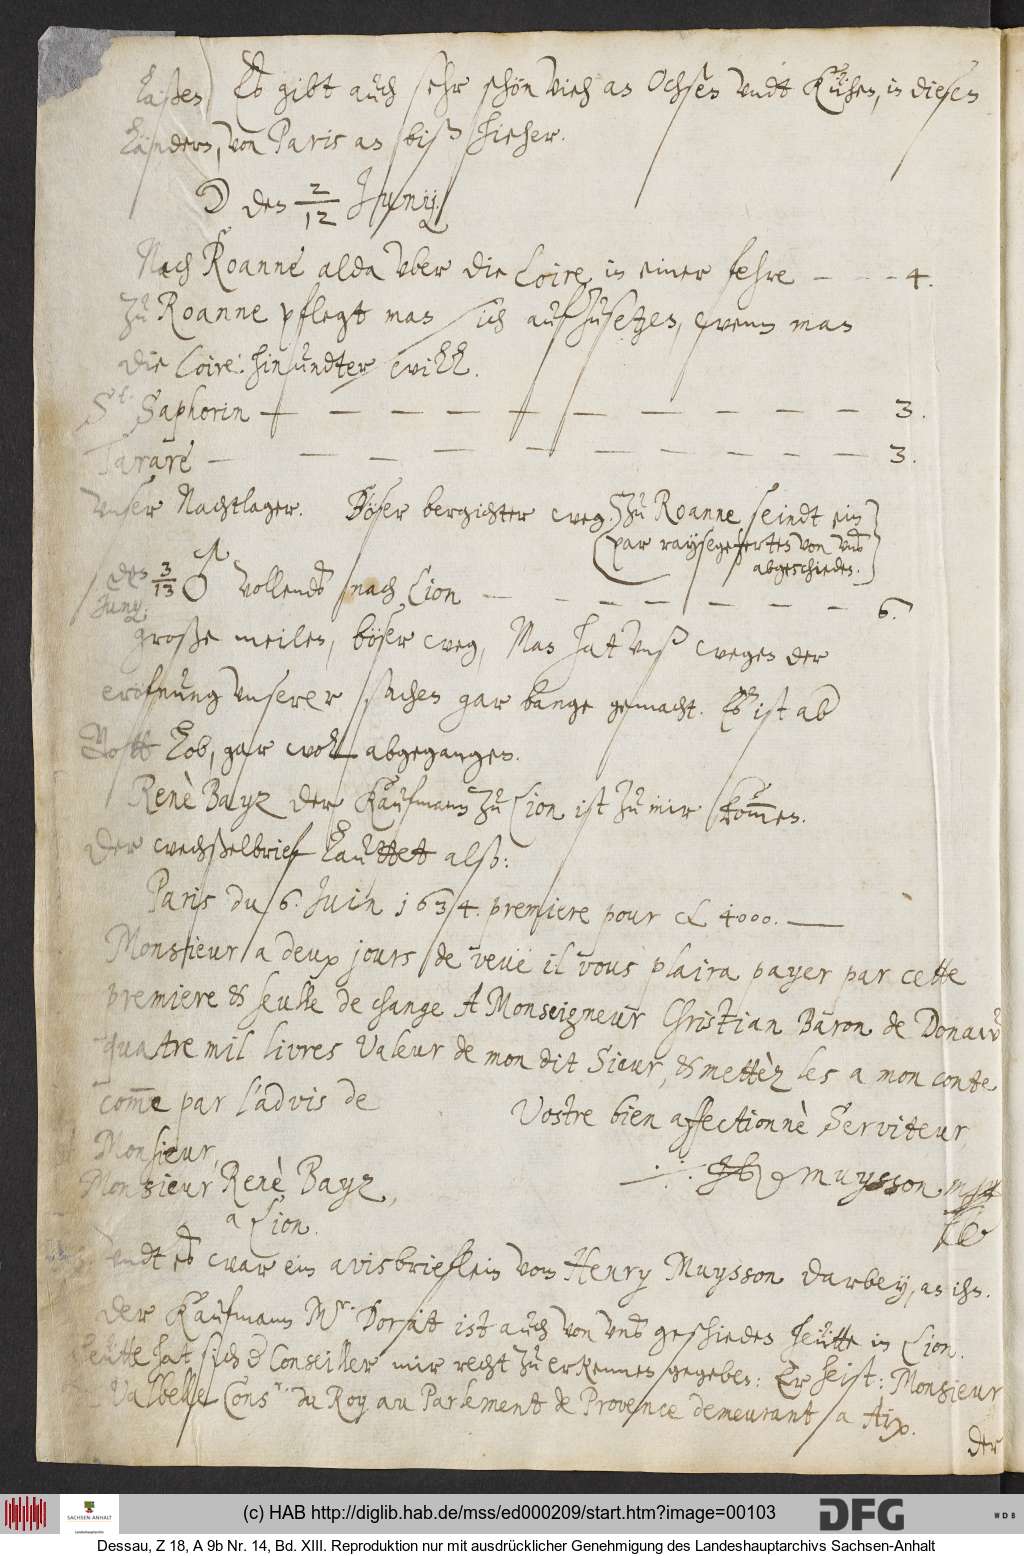 laßen Es gibt auch sehr schön vieh an Ochsen vndt Kühen, in diesen
Ländern, von Paris an biß hieher.
☽ den 2/12 Junij.
Nach Roanné alda vber die Loire in einer fehre — — — 4.
Zu Roanne pflegt man sich aufzusetzen, wenn man
die Loire hinundter will.
St. Saphorin — — — — — — — — — — 3.
Tararé — — — — — — — — — — 3.
Vnser Nachtlager. Böser bergichter weg. Zu Roanne seindt ein
par raysegeferten von vns
abgeschieden.
den 3/13 ♂ vollends nach Lion — — — — — — — — 6.
Junij.
große meilen, böser weg, Man hat vnß wegen der
eröfnung vnserer sachen gar bange gemacht. Es ist ab
Gott lob, gar wohl abgegangen.
Renè Bayz der Kaufmann zu Lion ist zu mir kommen.
Der wechßelbrief lauttet alß:
Paris du 6. Juin 1634. premiere pour cL 4000. —
Monsieur a deux jours de veuë il vous plaira payer par cette
premiere & seulle de change A Monseigneur Christian Baron de Donaw
quatre mil livres Valeur de mon dit Sieur, & mettèz les a mon conte
com̄e par l'advis de
Vostre bien affectionnè Serviteur
Monsieur,
Monsieur Renè Bayz,
a Lion.
Muysson
vndt es war ein avisbrieflein von Henry Muysson darbey, an ihn.
Der Kaufmann Mr. Dorsat ist auch von vns geschieden heütte in Lion.
Heütte hat sich der Conseiller mir recht zu erkennen gegeben: Er heist: Monsieur
Valbelle Consr. du Roy au Parlement de Provence demeurant a Aix.
der
(c) HAB http://diglib.hab.de/mss/ed000209/start.htm?image=00103
SACHSEN-ANHALT
DFG
WDB
Dessau, Z 18, A 9b Nr. 14, Bd. XIII. Reproduktion nur mit ausdrücklicher Genehmigung des Landeshauptarchivs Sachsen-Anhalt